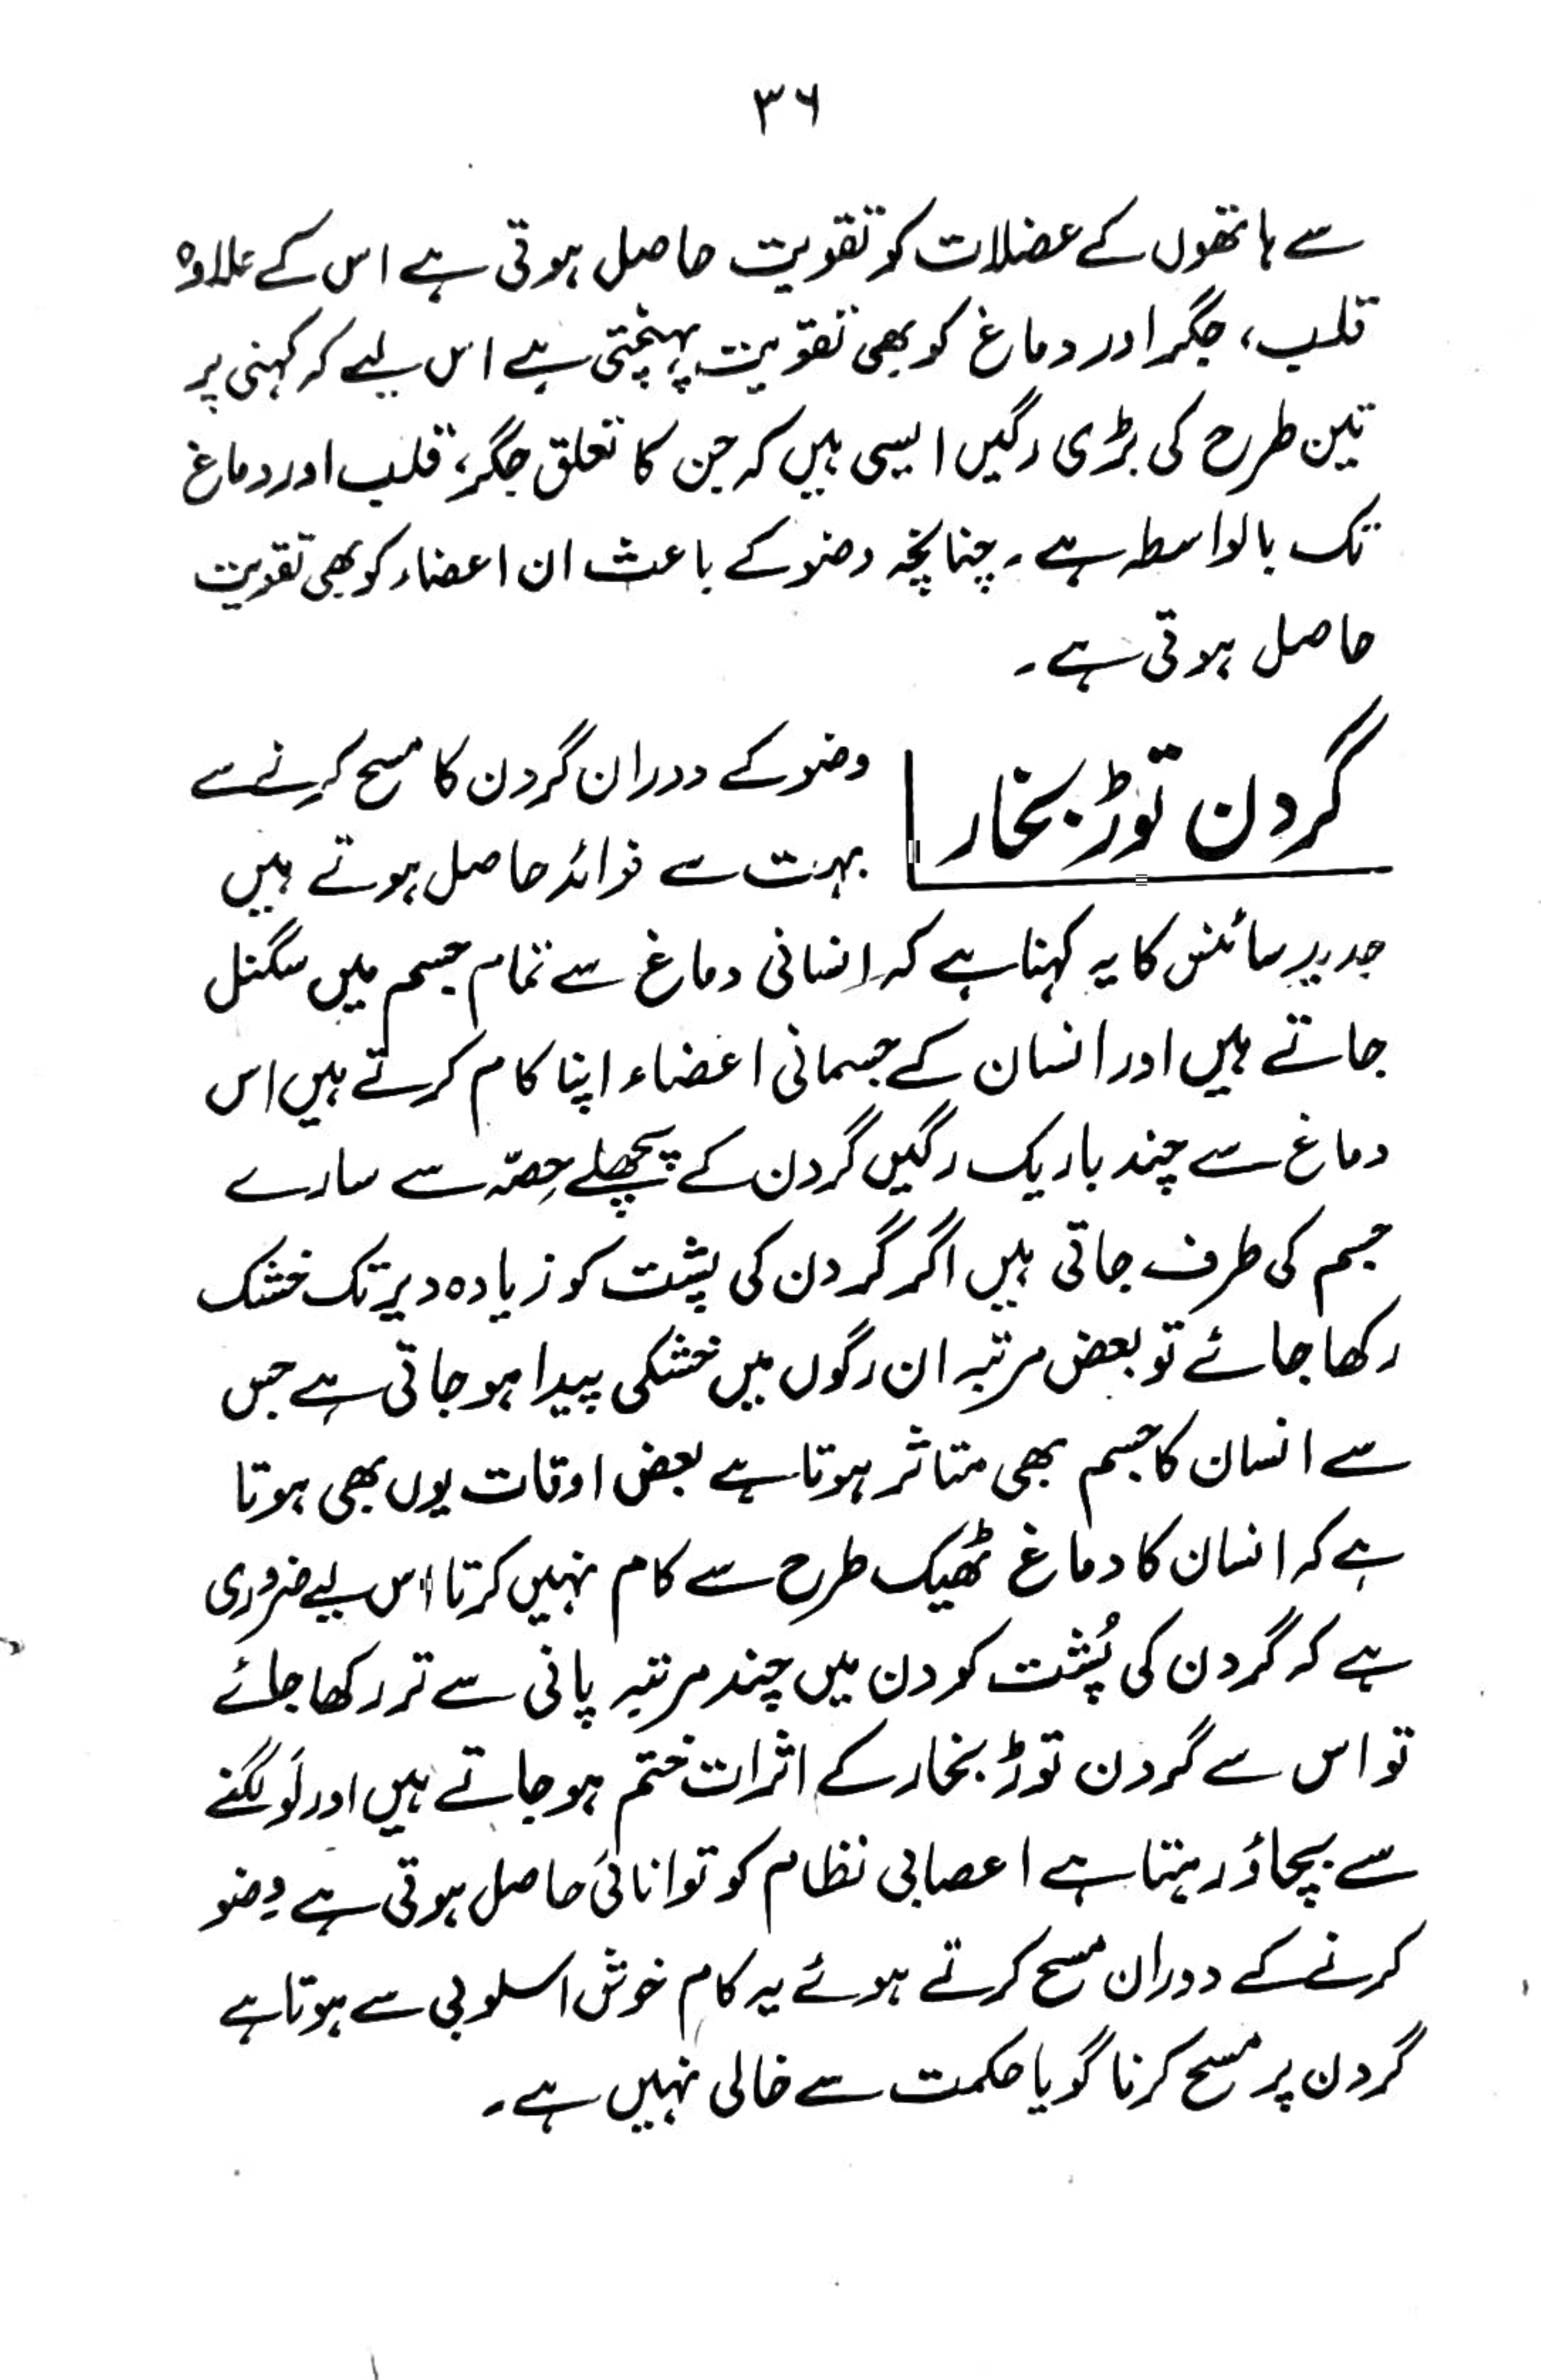 ۳۶
سے ہاتھوں کے عضلات کو تقویت حاصل ہوتی ہے اس کے علاوہ
قلب، جگر اور دماغ کو بھی تقویت پہنچتی ہے اس لیے کہ کہنی پر
تین طرح کی بڑی رگیں ایسی ہیں کہ جن کا تعلق جگر، قلب اور دماغ
تک بالواسطہ ہے۔ چنانچہ وضو کے باعث ان اعضاء کو بھی تقویت
حاصل ہوتی ہے۔
گردن توڑ بخار
وضو کے دوران گردن کا مسح کرنے سے
بہت سے فوائد حاصل ہوتے ہیں
جدید سائنس کا یہ کہنا ہے کہ انسانی دماغ سے تمام جسم میں سگنل
جاتے ہیں اور انسان کے جسمانی اعضاء اپنا کام کرتے ہیں اس
دماغ سے چند باریک رگیں گردن کے پچھلے حِصّہ سے سارے
جسم کی طرف جاتی ہیں اگر گردن کی پشت کو زیادہ دیر تک خشک
رکھا جائے تو بعض مرتبہ ان رگوں میں خشکی پیدا ہو جاتی ہے جس
سے انسان کا جسم بھی متاثر ہوتا ہے بعض اوقات یوں بھی ہوتا
ہے کہ انسان کا دماغ ٹھیک طرح سے کام نہیں کرتا اس لیے ضروری
ہے کہ گردن کی پُشت کو دن میں چند مرتبہ پانی سے تر رکھا جائے
تو اس سے گردن توڑ بخار کے اثرات ختم ہو جاتے ہیں اور لَو لگنے
سے بچاؤ رہتا ہے اعصابی نظام کو توانائی حاصل ہوتی ہے وضو
کرنے کے دوران مسح کرتے ہوئے یہ کام خوش اسلوبی سے ہوتا ہے
گردن پر مسح کرنا گویا حکمت سے خالی نہیں ہے۔